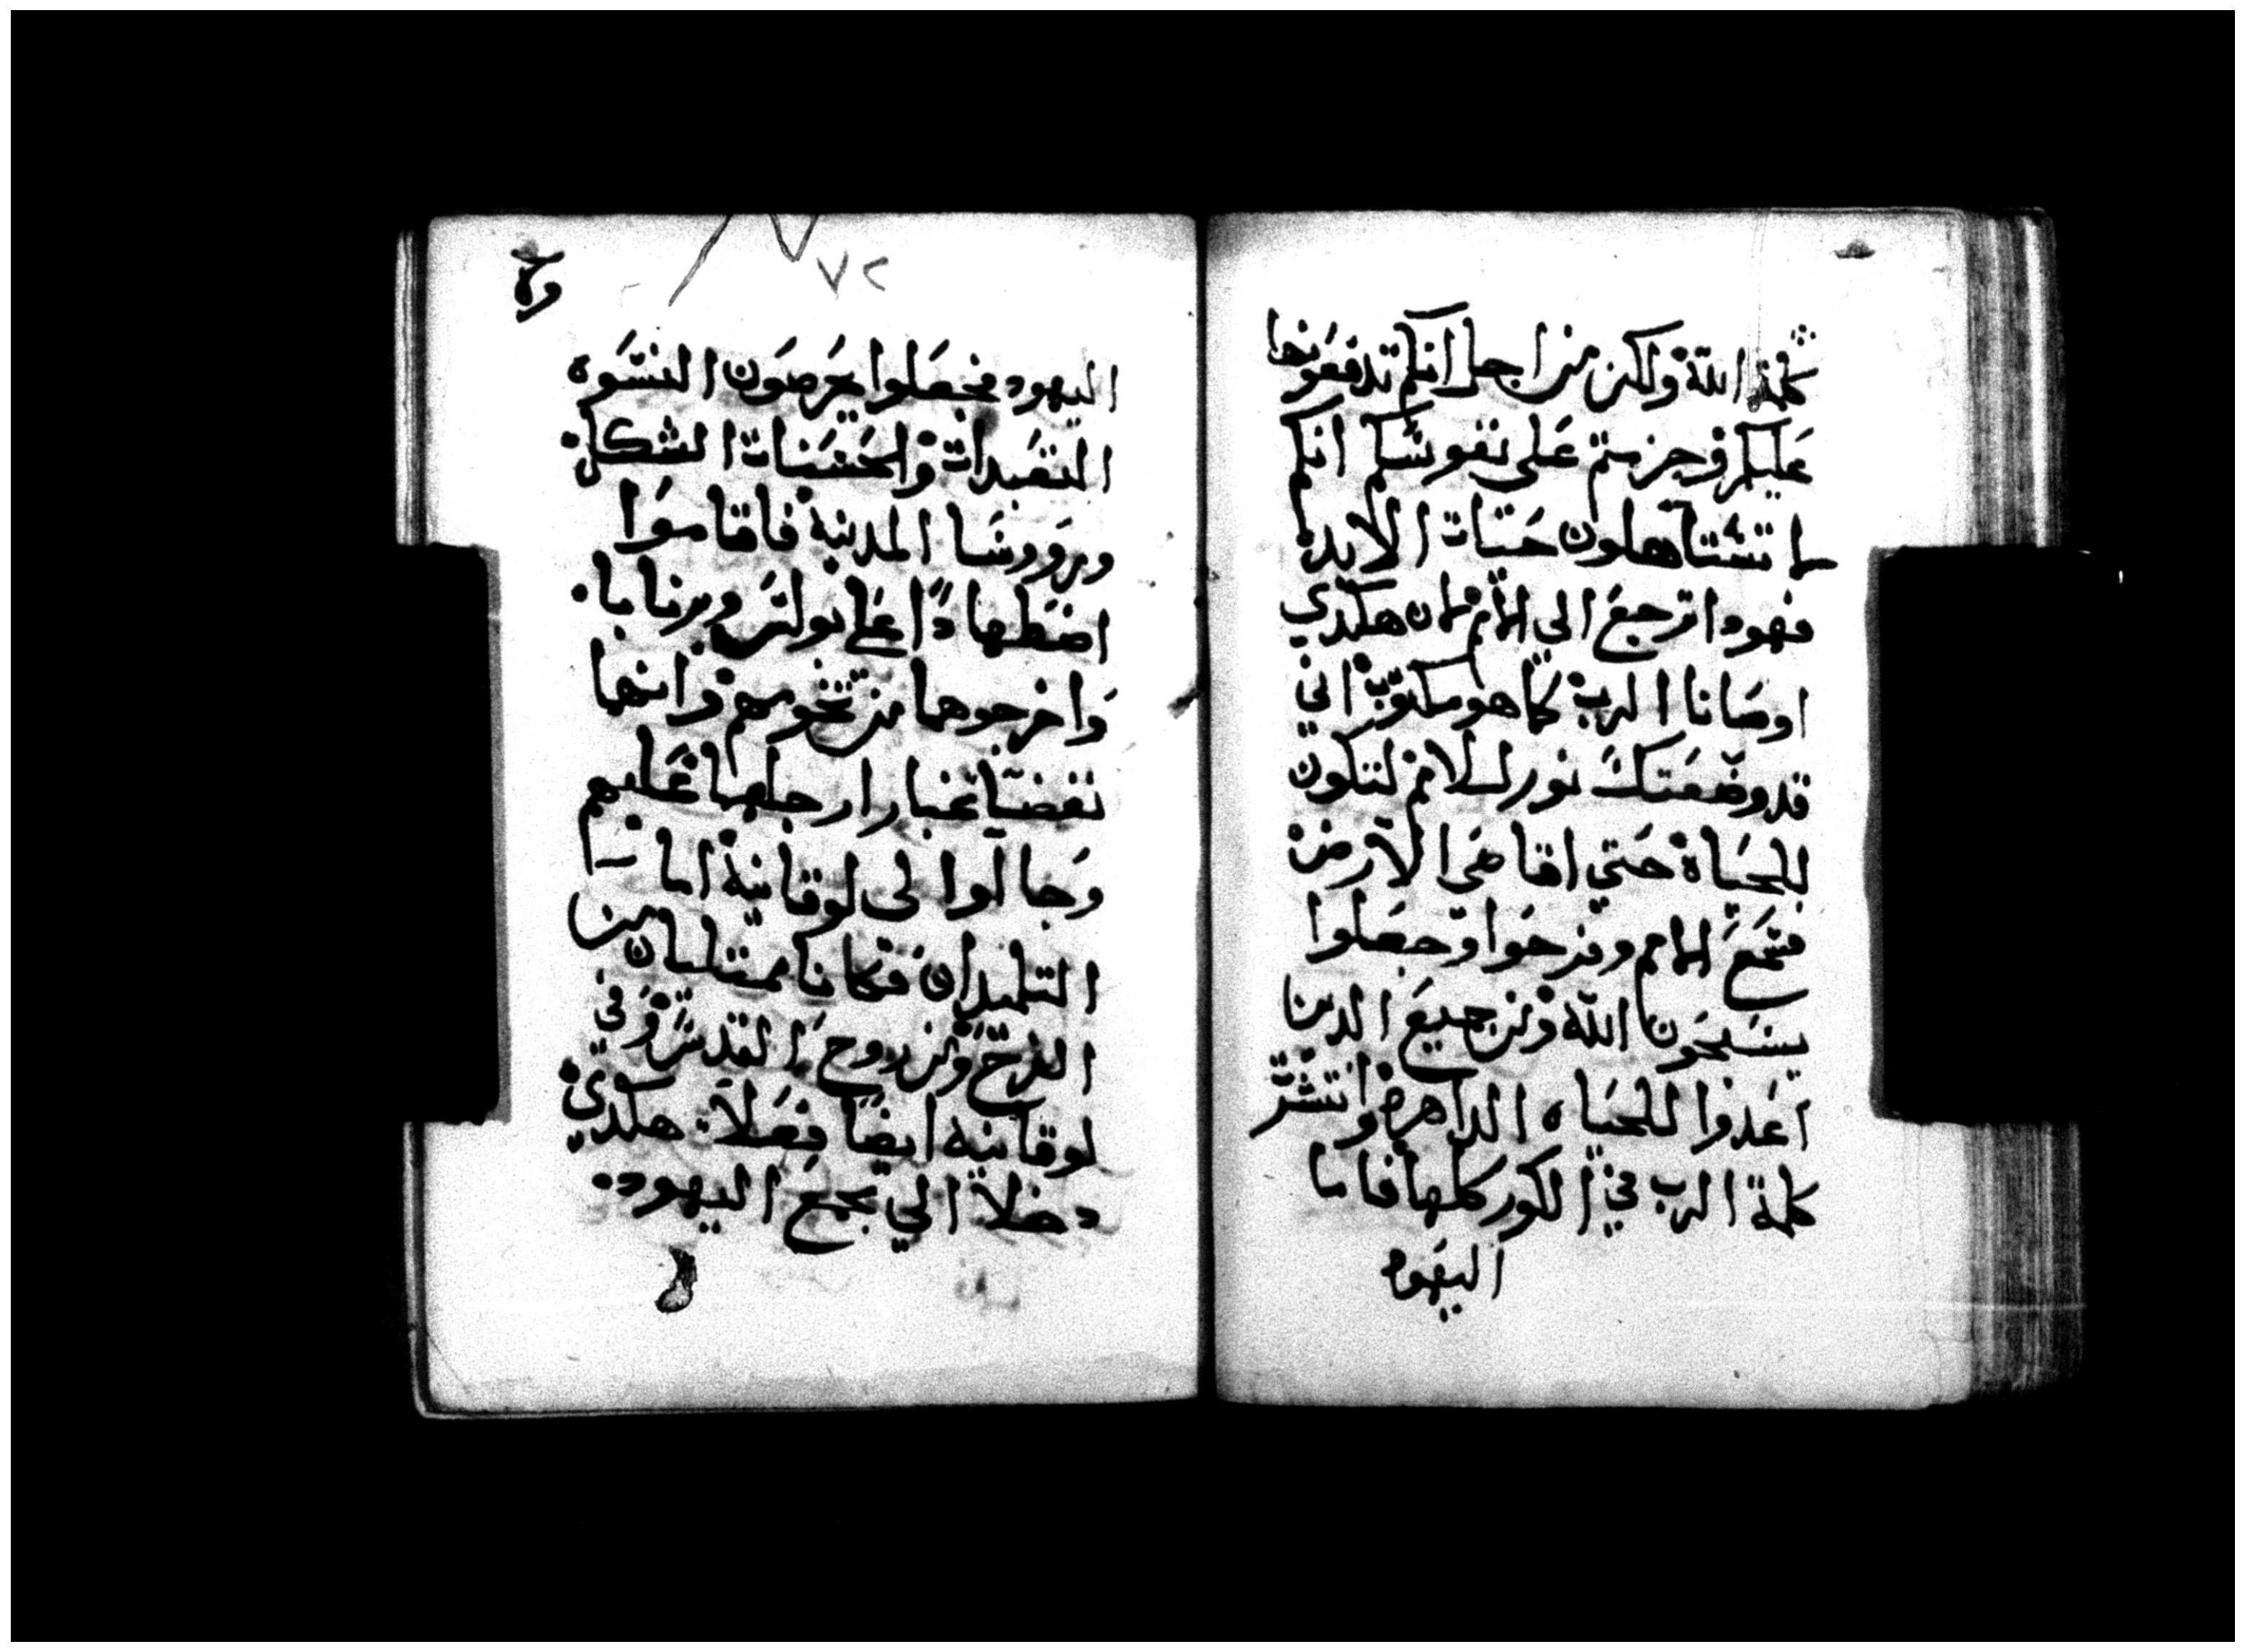 كلمة الله ولكن من اجل انكم تدفعونها
عليكم وجزمتم على نفوسكم انكم
لا تستاهلون حيات الابد
فهودا نرجع الي الامم لان هكدي
اوصانا الرب كما هو مكتوب اني
قد وضعتك نور للامم لتكون
للحياة حتي اقاصي الارض
فسمع الامم وفرحوا وجعلوا
يسبحون الله ومن جميع الدين
اعدوا للحياه الداهرة وانتشر
كلمة الرب في الكور كلها فاما
اليهود
٧٢
اليهود فجعلوا يحرصون النسوه
المتعبدات والحسنات الشكل
وروسا المدينة فاقاموا
اضطهادًا على بولس وبرنابا
واخرجوهما من تخومهم وانهما
نفضا غبار ارجلهما عليهم
وجا لوا لى لوقانية اما
التلميدان فكانا ممتليان من
الفرح ومن روح القدس وفي
لوقانية ايضا فعلا هكدي
دخلا الي مجمع اليهود